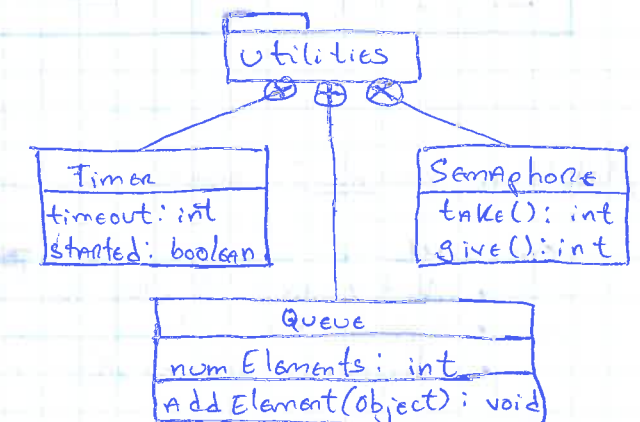 utilities
Timer
timeout: int
started: boolean
Semaphore
take(): int
give(): int
Queue
num Elements: int
Add Element(Object): void